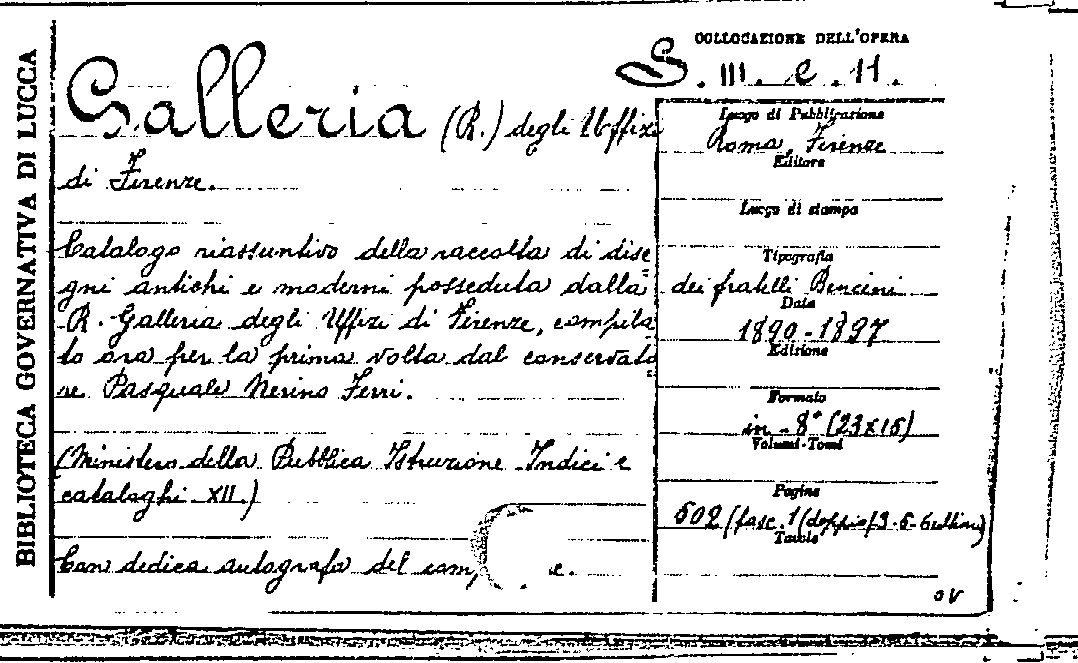 BIBLIOTECA GOVERNATIVA DI LUCCA
COLLOCAZIONE DELL'OPERA
S. III. e. 11.
Galleria (R.) degli Uffizi
di Firenze.
Catalogo riassuntivo della raccolta di dise=
gni antichi e moderni posseduta dalla
R. Galleria degli Uffizi di Firenze, compila=
to ora per la prima volta dal conservato
re Pasquale Nerino Ferri.
(Ministero della Pubblica Istruzione - Indici e
cataloghi XII.)
Con dedica autografa del
Luogo di Pubblicazione
Roma, Firenze
Editore
Luogo di stampa
Tipografia
dei fratelli Bencini
Data
1890-1897
Edizione
Formato
in-8° (23x15)
Volumi-Tomi
Pagine
502 (fasc. 1 (doppio) 3-5-6
Tavole